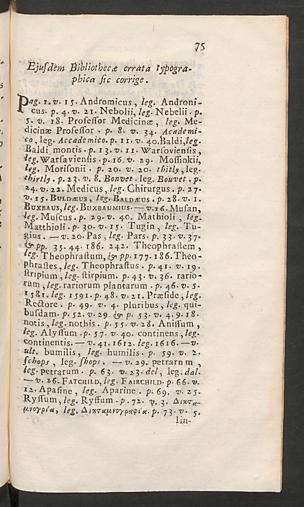 75
Ejusdem Bibliothecæ errata typogra-
phica sic corrige.
Pag. 1. v. 15. Andromicus, leg. Androni-
cus. p. 4. v. 21. Nebolii, leg. Nebelii. p.
5. v. 18. Professor Medicinæ, leg. Me-
dicinæ Professor. p. 8. v. 34. Academi-
co, leg. Accademico. p. 11. v. 40. Baldi, leg.
Baldi montis. p. 13. v. 11. Warioviensis,
leg. Warsaviensis. p. 16. v. 29. Mossiokii,
leg. Morisonii. p. 20. v. 20. thitly, leg.
thirtly. p. 23. v. 8. Bonvet. leg. Bouvet. p.
24. v. 22. Medicus, leg. Chirurgus. p. 27.
v. 15. BUDÆUS, leg. BALDÆUS. p. 28. v. 1.
BUXBAUD, leg. BUXBAUMIUS. — v. 16. Musan,
leg. Muscus. p. 29. v. 40. Mathioli, leg.
Matthioli. p. 30. v. 15. Tugin, leg. Tu-
gius. — v. 20. Pas, leg. Pars. p. 33. v. 37.
& pp. 35. 44. 186. 242. Theophrastem,
leg. Theophrastum, & pp. 177. 186. Theo-
phrastes, leg. Theophrastus. p. 41. v. 19.
stripium, leg. stirpium. p. 43. v. 36. rario-
rum, leg. rariorum plantarum. p. 46. v. 5.
1581. leg. 1591. p. 48. v. 21. Præside, leg.
Rectore. p. 49. v. 4. pluribus, leg. qui-
busdam. p. 52. v. 29. & p. 53. v. 4. 9. 18.
notis, leg. nothis. p. 55. v. 28. Anissum,
leg. Alyssum. p. 57. v. 40. continens, leg.
continentis. — v. 41. 1612. leg. 1616. — v.
ult. bumilis, leg. humilis. p. 59. v. 2.
schops, leg. shops. — v. 29. petrarnm,
leg. petrarum. p. 63. v. 23. del, leg. dal.
— v. 26. FATCHILD, leg. FAIRCHILD. p. 66. v.
12. Apasine, leg. Aparine. p. 69. v. 25.
Ryssum, leg. Ryssum. p. 72. v. 3. Δικτα-
μνογρία, leg. Δικταμνογραφία. p. 73. v. 5.
lin-